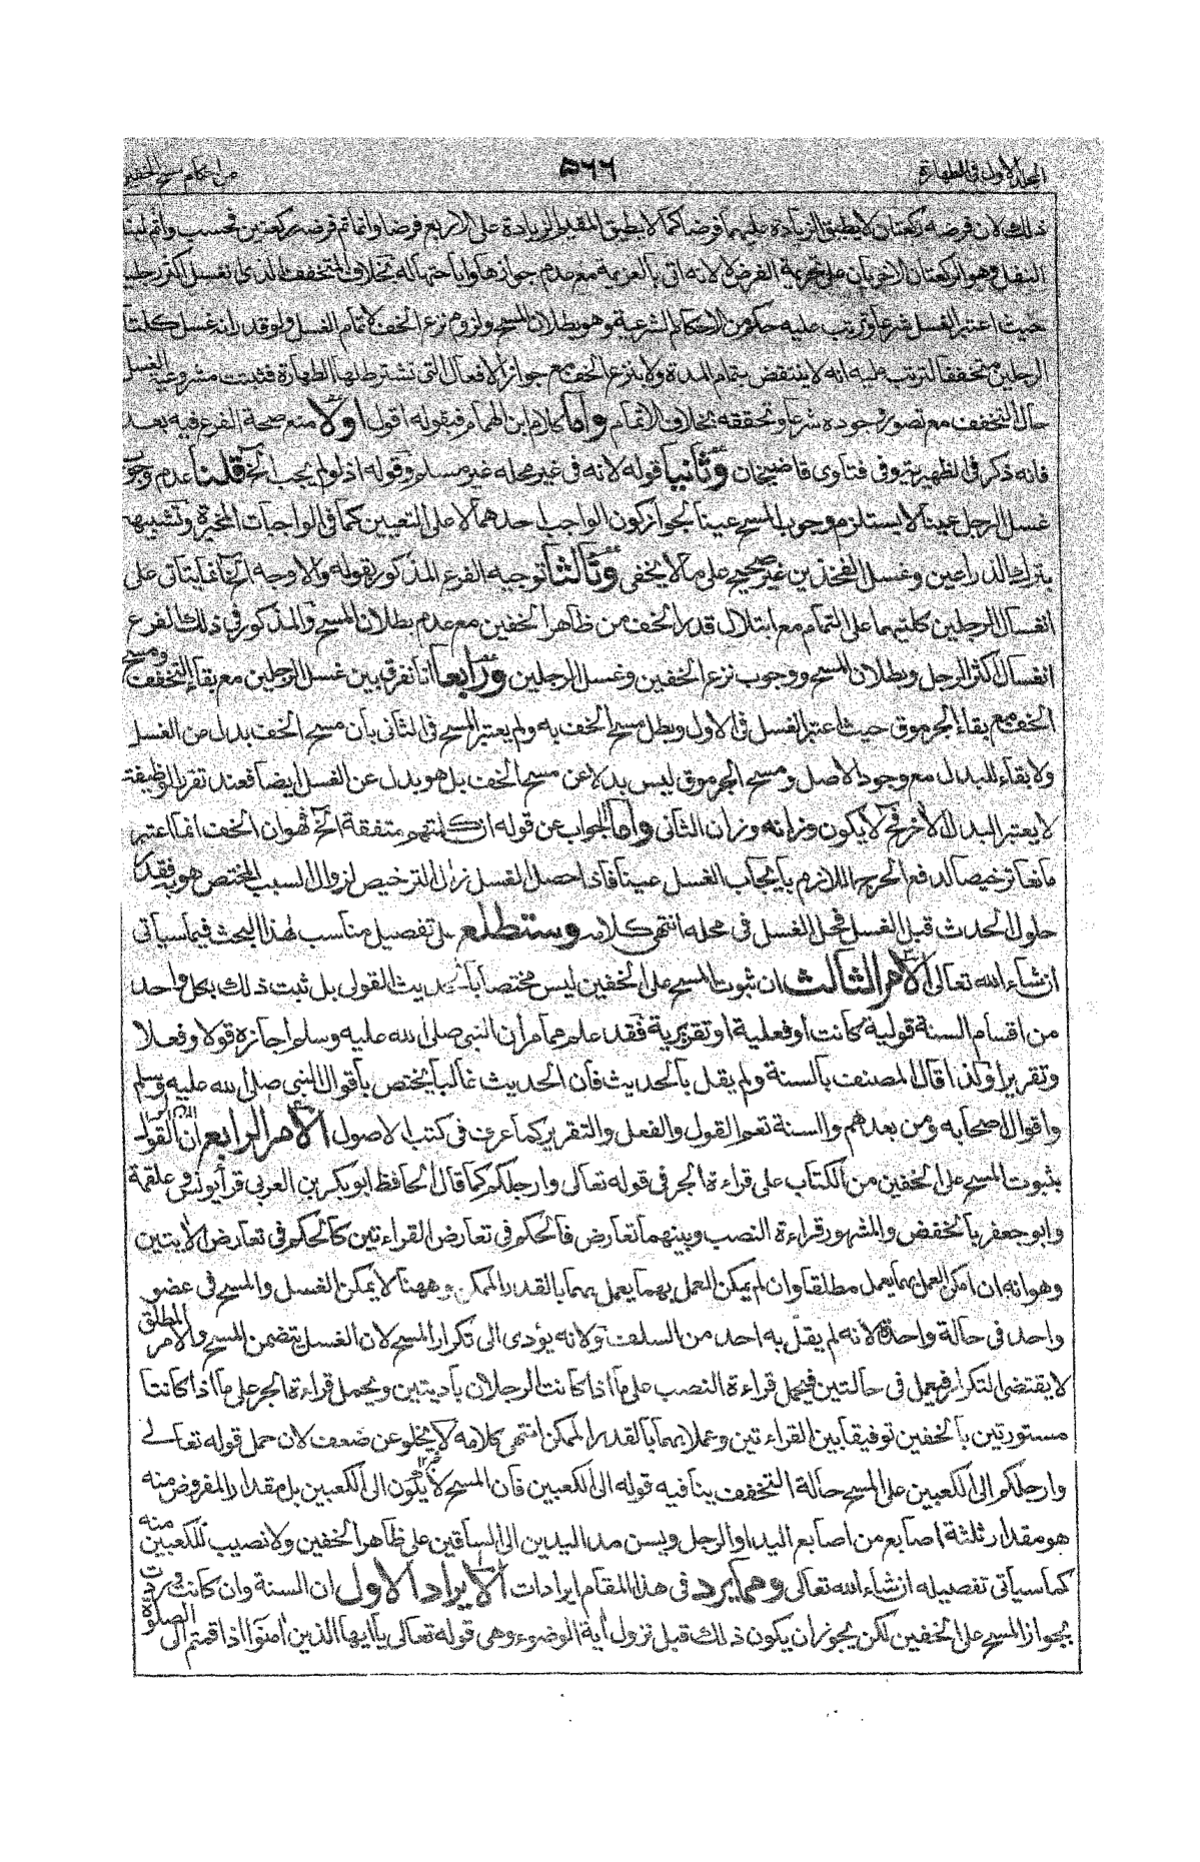 المجلد الاول في الطهارة ٥٦٦ من احكام مسح الخفين
ذلك لان فرضه ركعتان لا يطيق الزيادة عليهما فرضا كما لا يطيق المقيم الزيادة على الاربع فرضا وانما تم فرضه بركعتين فحسب وانما لبناء
النفل وهو الركعتان الاخريان على تحريمة الفرض لا لانه اتى بالعزيمة مع عدم جوازها واباحتها له بخلاف المتخفف الذي انغسل اكثر رجليه
حيث اعتبر الغسل شرعا وترتب عليه حكم من الاحكام الشرعية وهو بطلان المسح ولزوم نزع الخف لاتمام الغسل ولو قدر انه غسل كلتا
الرجلين متخففا لترتب عليه انه لا ينتقض بتمام المدة ولا بنزع الخف مع جواز الافعال التي تشترط لها الطهارة فثبتت مشروعية الغسل
حال التخفف مع تصور وجوده شرعا وتحققه بخلاف الاتمام واما كلام ابن الهمام فبقوله اقول اولا منع صحة الفرع فيه بعد
فانه ذكر في الظهيرية وفي فتاوى قاضيخان وثانيا قوله لانه في غير محله غير مسلم وقوله اذ لو لم يجب الخ قلنا عدم وجوب
غسل الرجل عينا لا يستلزم وجوب المسح عينا لجواز كون الواجب احدهما لا على التعيين كما في الواجبات المخيرة وتشبيهه
بترك الذراعين وغسل الفخذين غير صحيح على ما لا يخفى وثالثا توجيه الفرع المذكور بقوله والاوجه الخ انما يتاتى على
انغسال الرجلين كلتيهما على التمام مع ابتلال قدر الخف من ظاهر الخفين مع عدم بطلان المسح والمذكور في ذلك الفرع
انغسال اكثر الرجل وبطلان المسح ووجوب نزع الخفين وغسل الرجلين ورابعا انا نفرق بين غسل الرجلين مع بقاء التخفف ومسح
الخف مع بقاء الجرموق حيث اعتبر الغسل في الاول وبطل مسح الخف به ولم يعتبر المسح في الثاني بان مسح الخف بدل من الغسل
ولا بقاء للبدل مع وجود الاصل ومسح الجرموق ليس بدلا عن مسح الخف بل هو بدل عن الغسل ايضا فعند تقرر الوظيفة
لا يعتبر البدل الاخر فح لا يكون وزانه وزان الثاني واما الجواب عن قوله ان كلتهم متفقة الخ فهو ان الخف انما اعتبر
مانعا ترخيصا لدفع الحرج اللازم بايجاب الغسل عينا فاذا حصل الغسل زال الترخيص لزوال السبب المختص هو به فقدر
حلول الحدث قبل الغسل فحل الغسل في محله انتهى كلامه وستطلع على تفصيل مناسب لهذا البحث فيما سياتي
ان شاء الله تعالى الامر الثالث ان ثبوت المسح على الخفين ليس مختصا بالحديث القولي بل ثبت ذلك بكل واحد
من اقسام السنة قولية كانت او فعلية او تقريرية فقد علم مما مر ان النبي صلى الله عليه وسلم اجازه قولا وفعلا
وتقريرا ولذا قال المصنف بالسنة ولم يقل بالحديث فان الحديث غالبا يختص باقوال النبي صلى الله عليه وسلم
واقوال اصحابه ومن بعدهم والسنة تعم القول والفعل والتقرير كما عرف في كتب الاصول الامر الرابع ان القول
بثبوت المسح على الخفين من الكتاب على قراءة الجر في قوله تعالى وارجلكم كما قال الحافظ ابو بكر بن العربي قرأ علقمة
وابو جعفر بالخفض والمشهور قراءة النصب وبينهما تعارض فالحكم في تعارض القراءتين كالحكم في تعارض الايتين
وهو انه ان امكن العمل بهما يعمل مطلقا وان لم يمكن العمل بهما يعمل بهما بالقدر الممكن وههنا لا يمكن الغسل والمسح في عضو
واحد في حالة واحدة لانه لم يقل به احد من السلف ولانه يؤدى الى تكرار المسح لان الغسل يتضمن المسح والامر المطلق
لا يقتضي التكرار فيعمل في حالتين فيحمل قراءة النصب على ما اذا كانت الرجلان باديتين ويحمل قراءة الجر على ما اذا كانتا
مستورتين بالخفين توفيقا بين القراءتين وعملا بهما بالقدر الممكن انتهى كلامه لا يخلو عن ضعف لان حمل قوله تعالى
وارجلكم الى الكعبين على المسح حالة التخفف ينافيه قوله الى الكعبين فان المسح لا يكون الى الكعبين بل مقدار المفروض منه
هو مقدار ثلثة اصابع من اصابع اليد او الرجل ويسن مد اليدين الى الساقين على ظاهر الخفين ولا نصيب للكعبين منه
كما سياتي تفصيله ان شاء الله تعالى ومما يرد في هذا المقام ايرادات الايراد الاول ان السنة وان كانت وردت
بجواز المسح على الخفين لكن يجوز ان يكون ذلك قبل نزول اية الوضوء وهي قوله تعالى يا ايها الذين امنوا اذا قمتم الى الصلوة